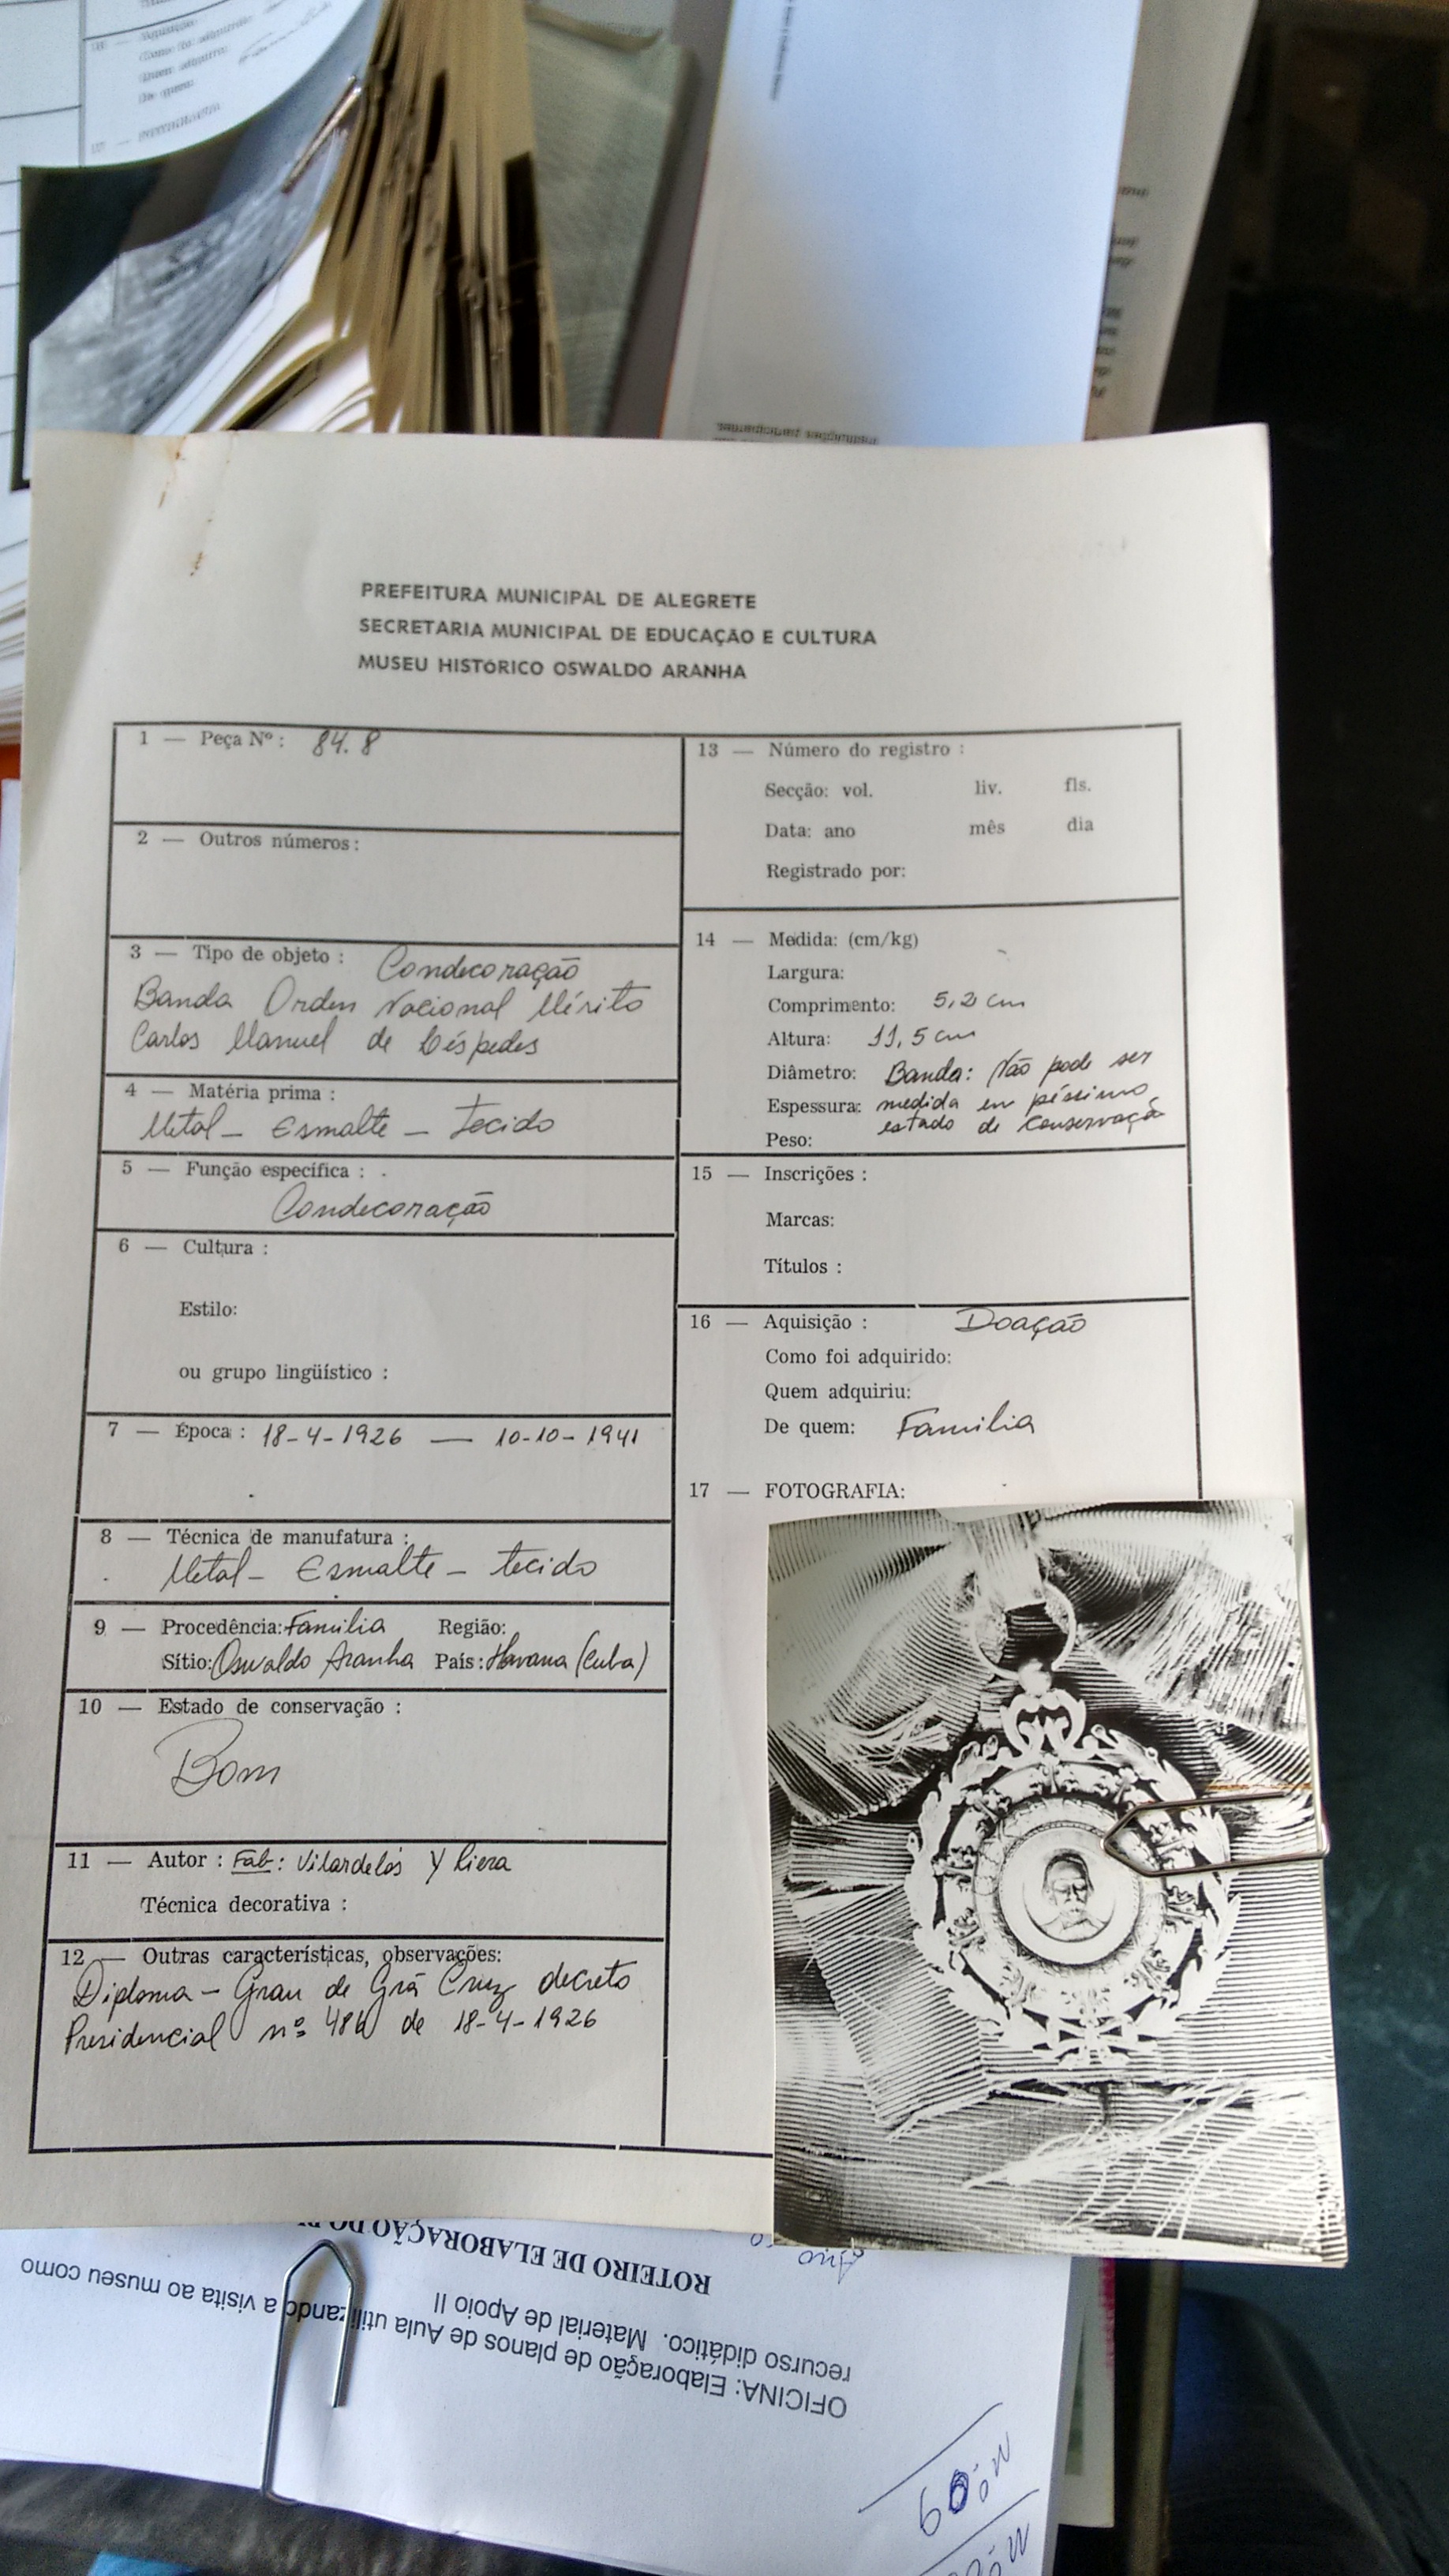 instituições participantes
PREFEITURA MUNICIPAL DE ALEGRETE
SECRETARIA MUNICIPAL DE EDUCAÇÃO E CULTURA
MUSEU HISTÓRICO OSWALDO ARANHA
1 — Peça Nº: 84.8
2 — Outros números:
3 — Tipo de objeto: Condecoração
Banda Orden Nacional Mérito
Carlos Manuel de Céspedes
4 — Matéria prima:
Metal - Esmalte - Tecido
5 — Função específica:
Condecoração
6 — Cultura:
Estilo:
ou grupo lingüístico:
7 — Época: 18-4-1926 — 10-10-1941
8 — Técnica de manufatura:
Metal - Esmalte - tecido
9 — Procedência: Familia Região:
Sítio: Oswaldo Aranha País: Havana (Cuba)
10 — Estado de conservação:
Bom
11 — Autor: Fab: Vilardebós Y Riera
Técnica decorativa:
12 — Outras características, observações:
Diploma - Grau de Grã Cruz decreto
Presidencial nº de 18-4-1926
13 — Número do registro:
Secção: vol. liv. fls.
Data: ano mês dia
Registrado por:
14 — Medida: (cm/kg)
Largura:
Comprimento: 5,2 cm
Altura: 11,5 cm
Diâmetro: Banda: Não pode ser
Espessura: medida em péssimo
estado de conservação
Peso:
15 — Inscrições:
Marcas:
Títulos:
16 — Aquisição: Doação
Como foi adquirido:
Quem adquiriu:
De quem: Familia
17 — FOTOGRAFIA:
ROTEIRO DE ELABORAÇÃO DO
OFICINA: Elaboração de planos de Aula utilizando a visita ao museu como
recurso didático. Material de Apoio II